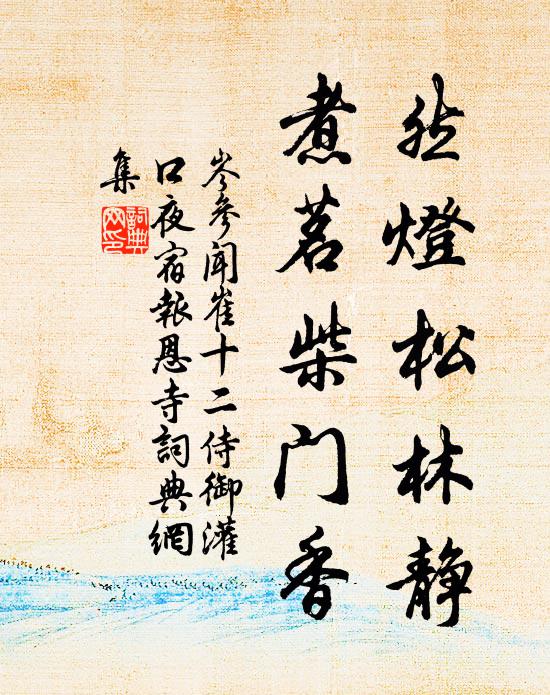 然燈松林静
煮茗柴门香
岑參聞崔十二侍御灌
口夜宿報恩寺詞典網
集
詞典
网印